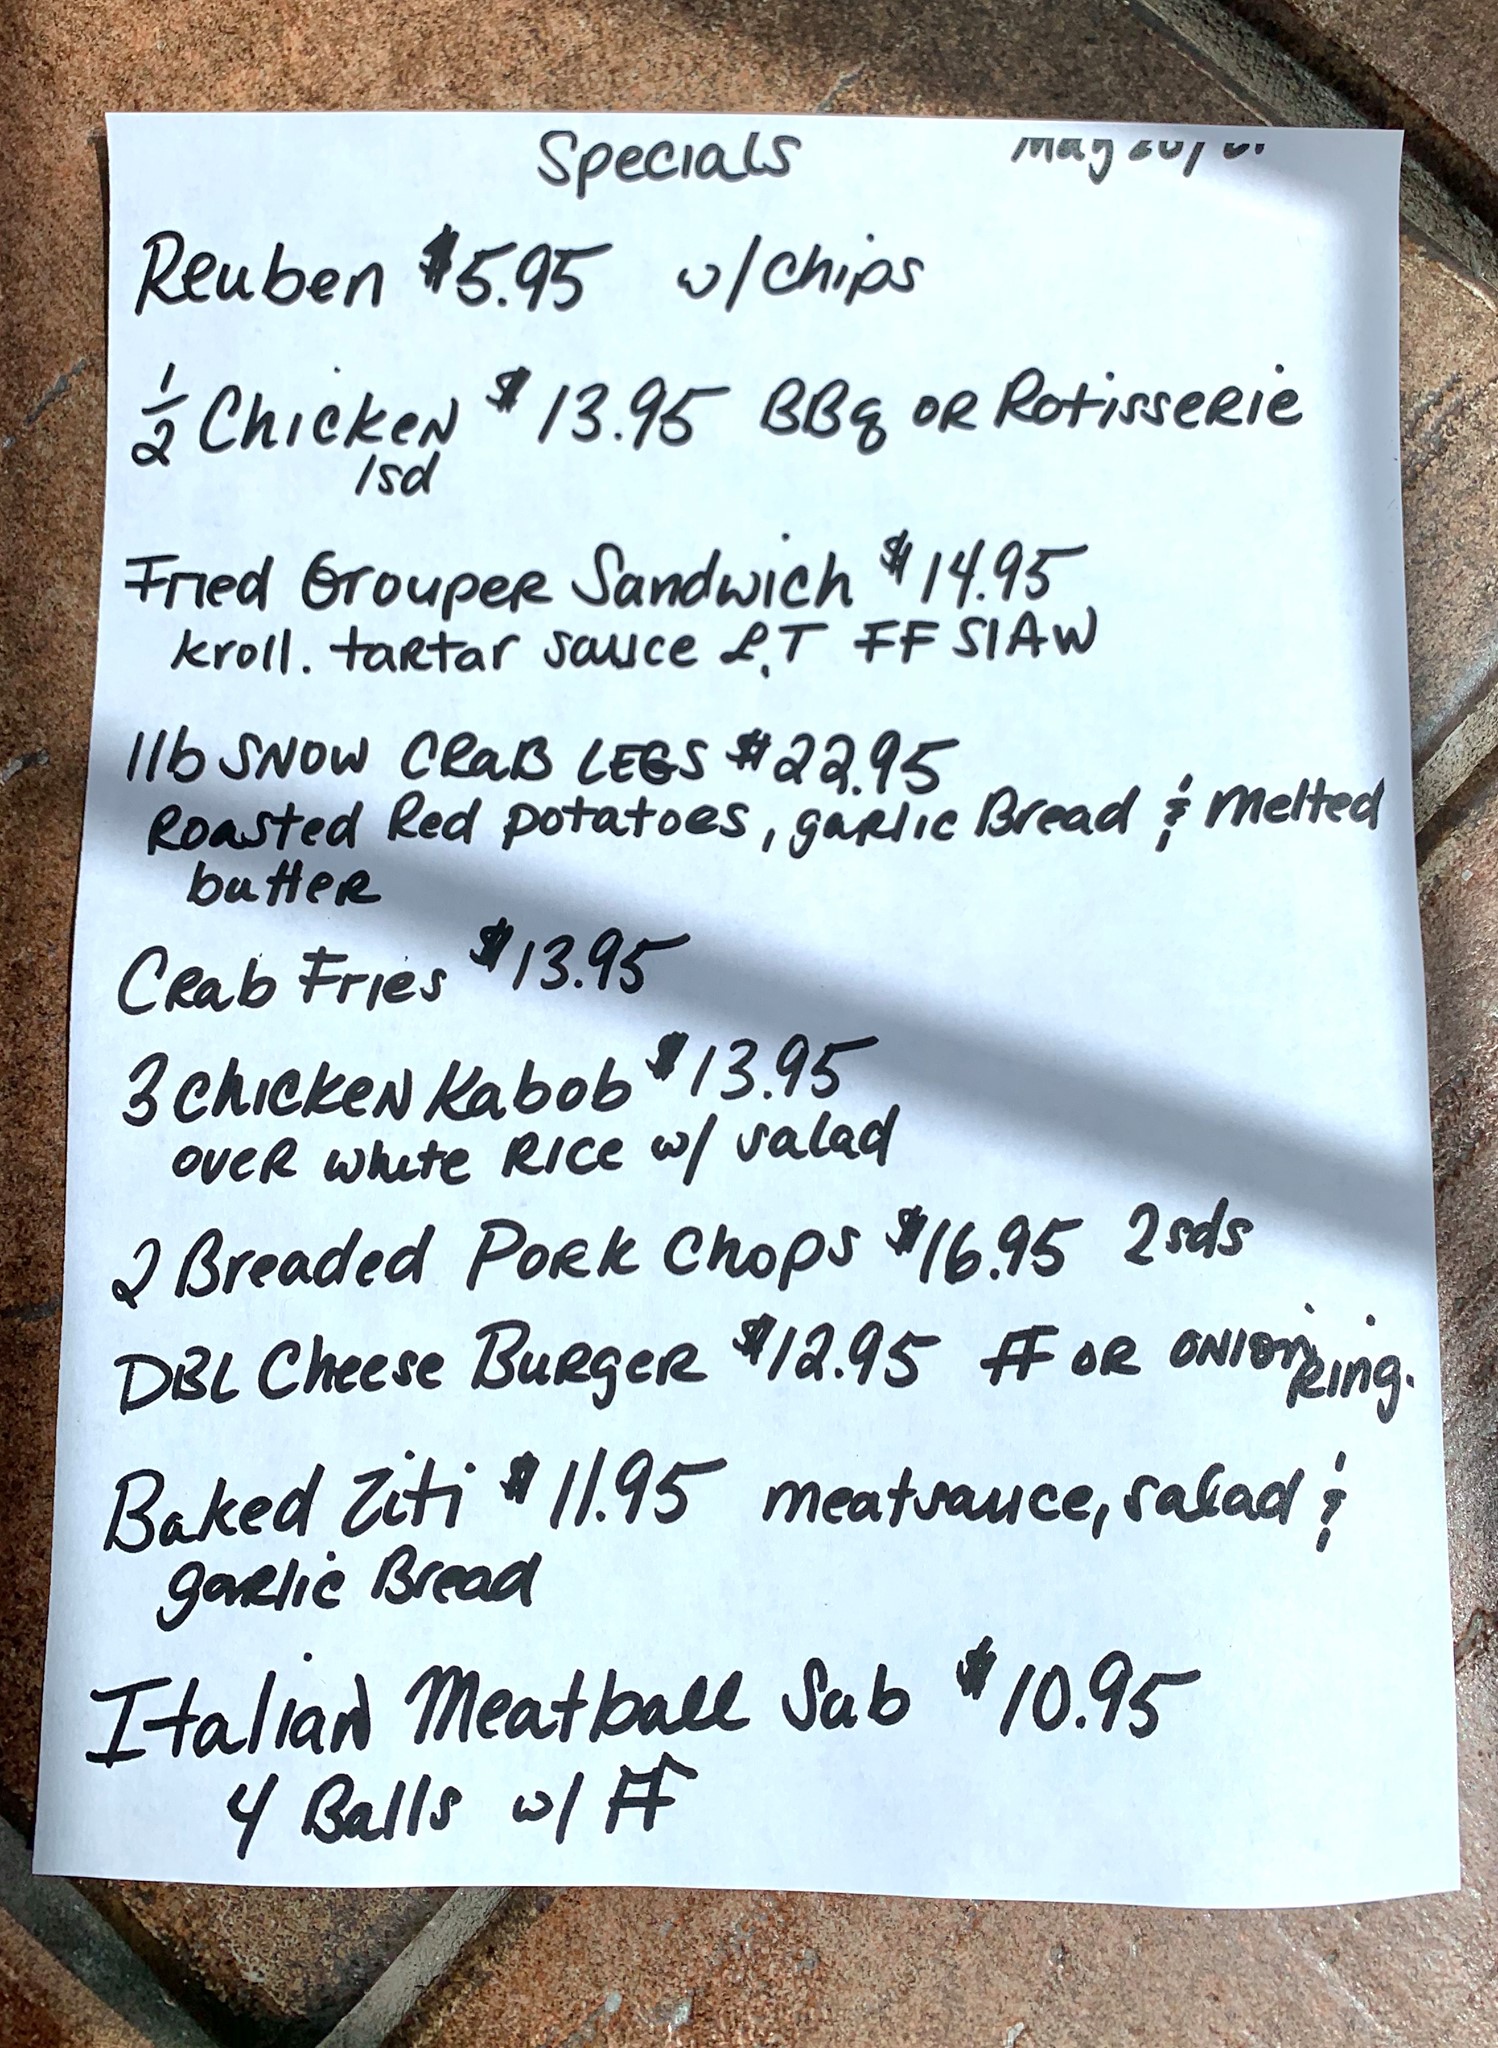 Specials May
Reuben $5.95 w/chips
1/2 Chicken $13.95 BBq OR Rotisserie
1sd
Fried Grouper Sandwich $14.95
kroll. tartar sauce L.T FF SlAW
1lb SNOW CRaB LEGS $22.95
Roasted Red potatoes, garlic Bread & melted
butter
Crab Fries $13.95
3 chicken Kabob $13.95
over white Rice w/ salad
2 Breaded Pork Chops $16.95 2sds
DBL Cheese Burger $12.95 FF OR ONION RING.
Baked Ziti $11.95 meatsauce, salad &
garlic Bread
Italian Meatball Sub $10.95
4 Balls w/ FF